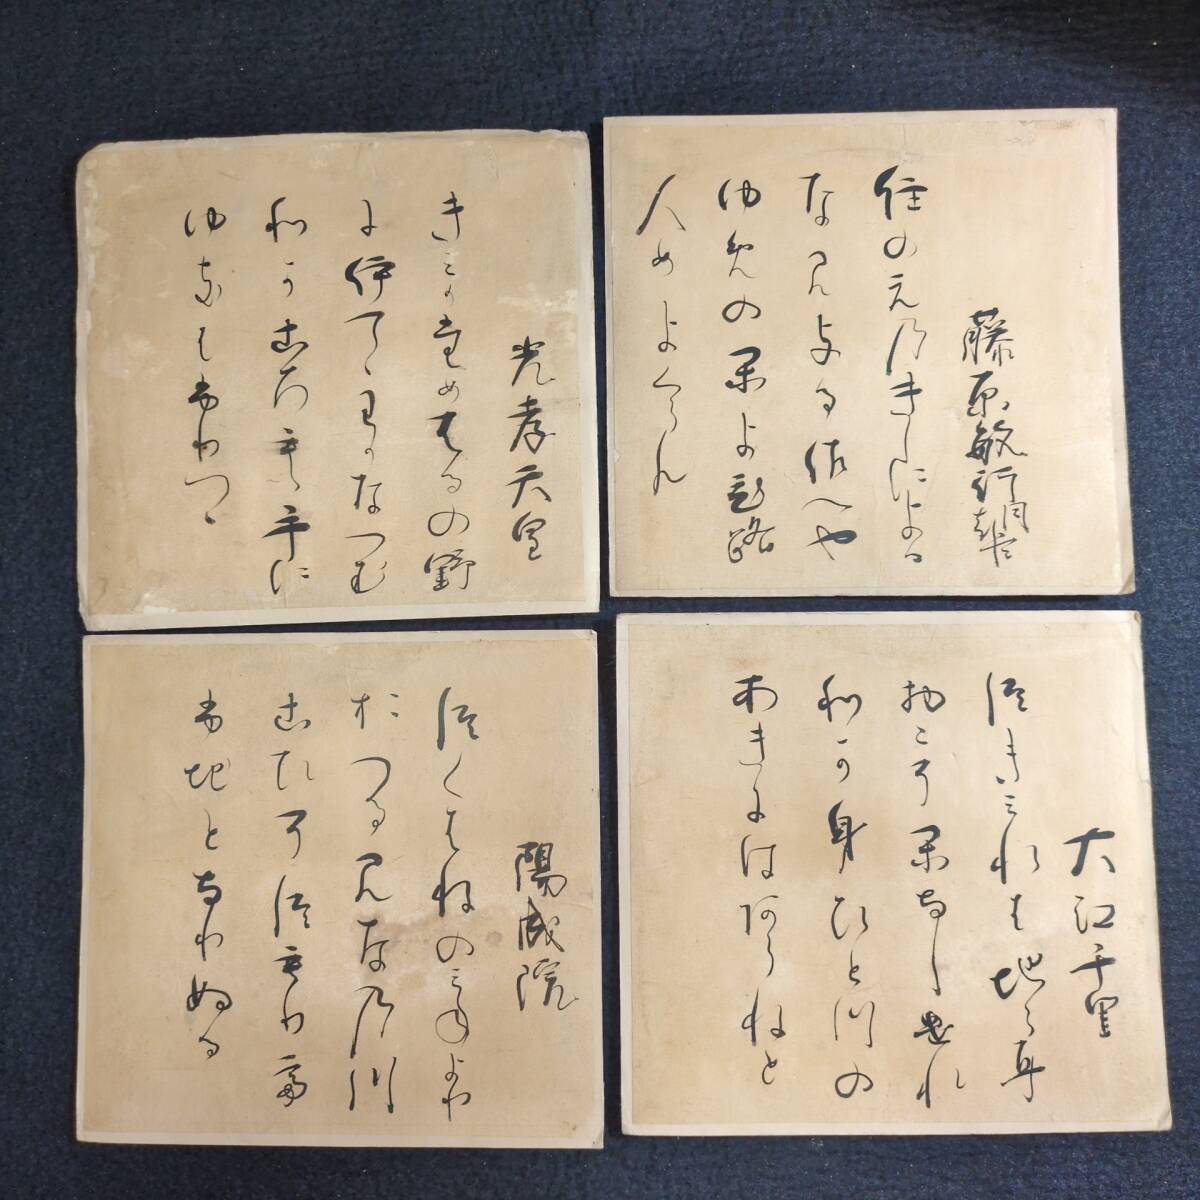 藤原敏行朝臣
住のえのきしによる
なみよるさへや
ゆめのかよひ路
人めよくらん
光孝天皇
きみかためはるの野
に伊てゝわかなつむ
わかころも手に
ゆきはふりつゝ
大江千里
つきみれはちゝに
物こそかなしけれ
わか身ひとつの
あきにはあらねと
陽成院
つくはねのみねより
おつるみなの川
こひそつもりて
ふちとなりぬる